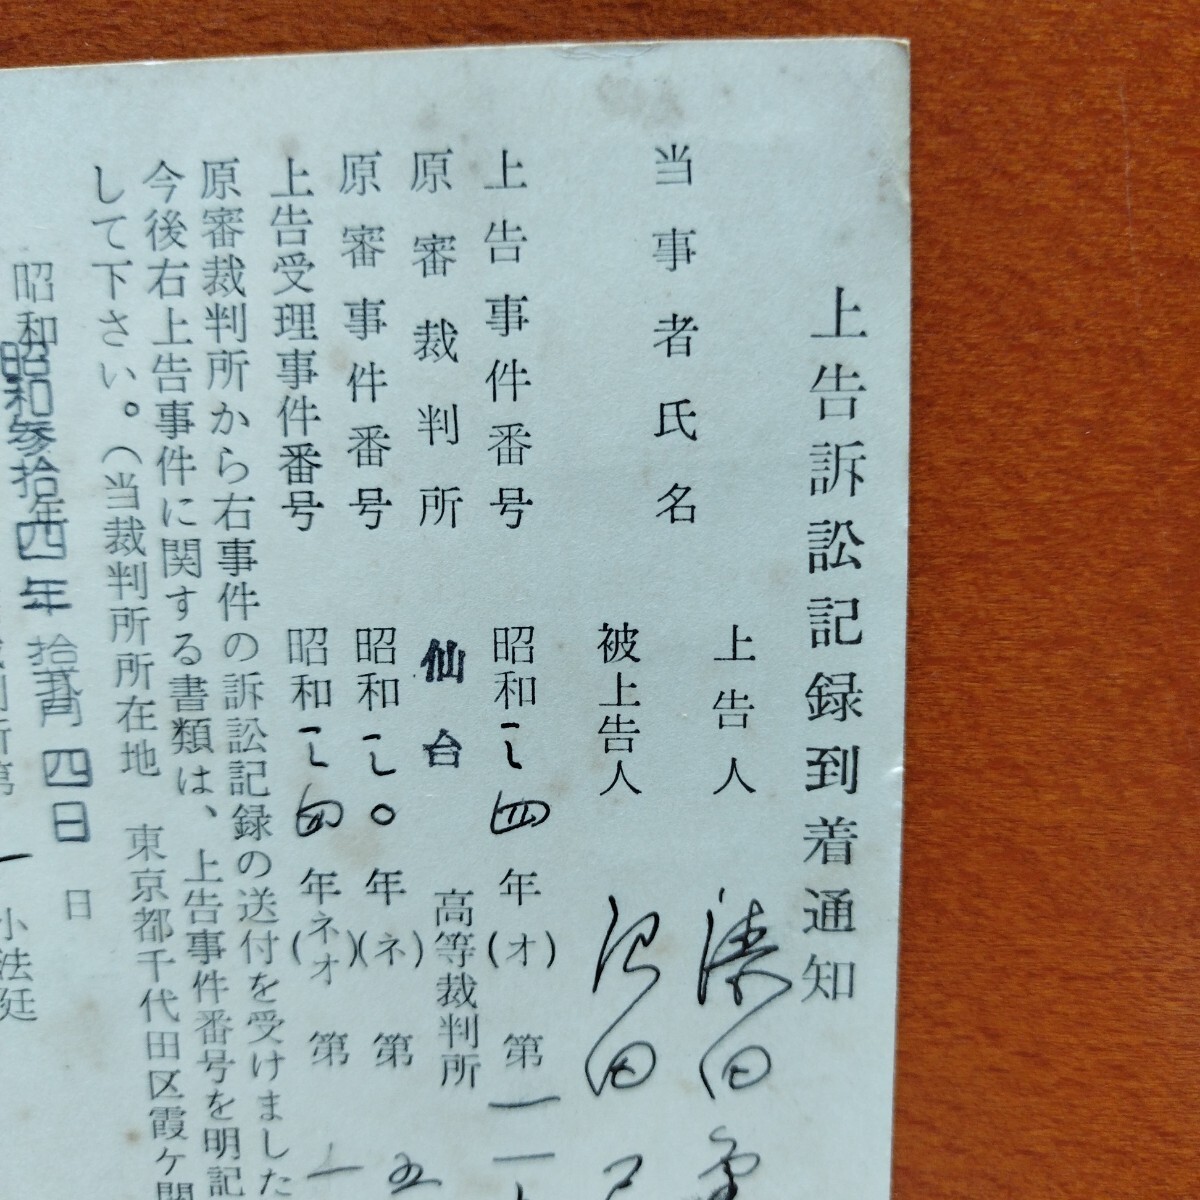 上告訴訟記録到着通知
当事者氏名
上告人
被上告人 沼田
上告事件番号 昭和三四年(オ)第一一
原審裁判所 仙台高等裁判所
原審事件番号 昭和三〇年(ネ)第五
上告受理事件番号 昭和三四年(ネオ)第一
原審裁判所から右事件の訴訟記録の送付を受けました
今後右上告事件に関する書類は、上告事件番号を明記
して下さい。(当裁判所所在地 東京都千代田区霞ケ関
昭和 年 月 日
昭和参拾四年拾弐月四日
裁判所第一小法廷